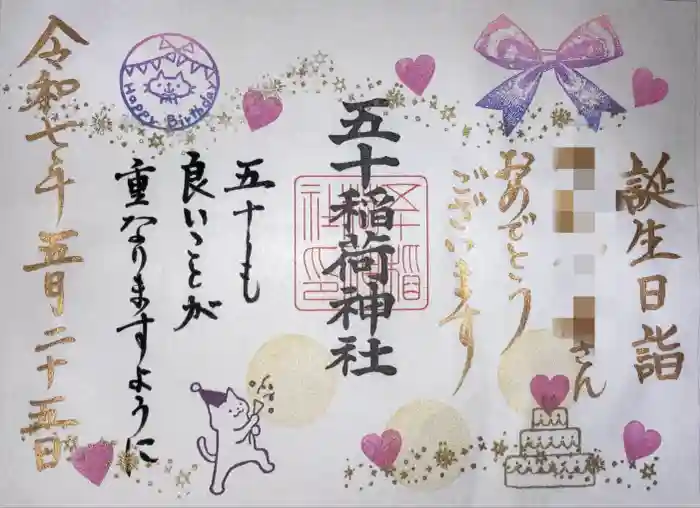 誕生日詣
さん
おめでとう
ございます
五十稲荷神社
五十も
良いことが
重なりますように
令和七年 五月二十五日
Happy Birthday